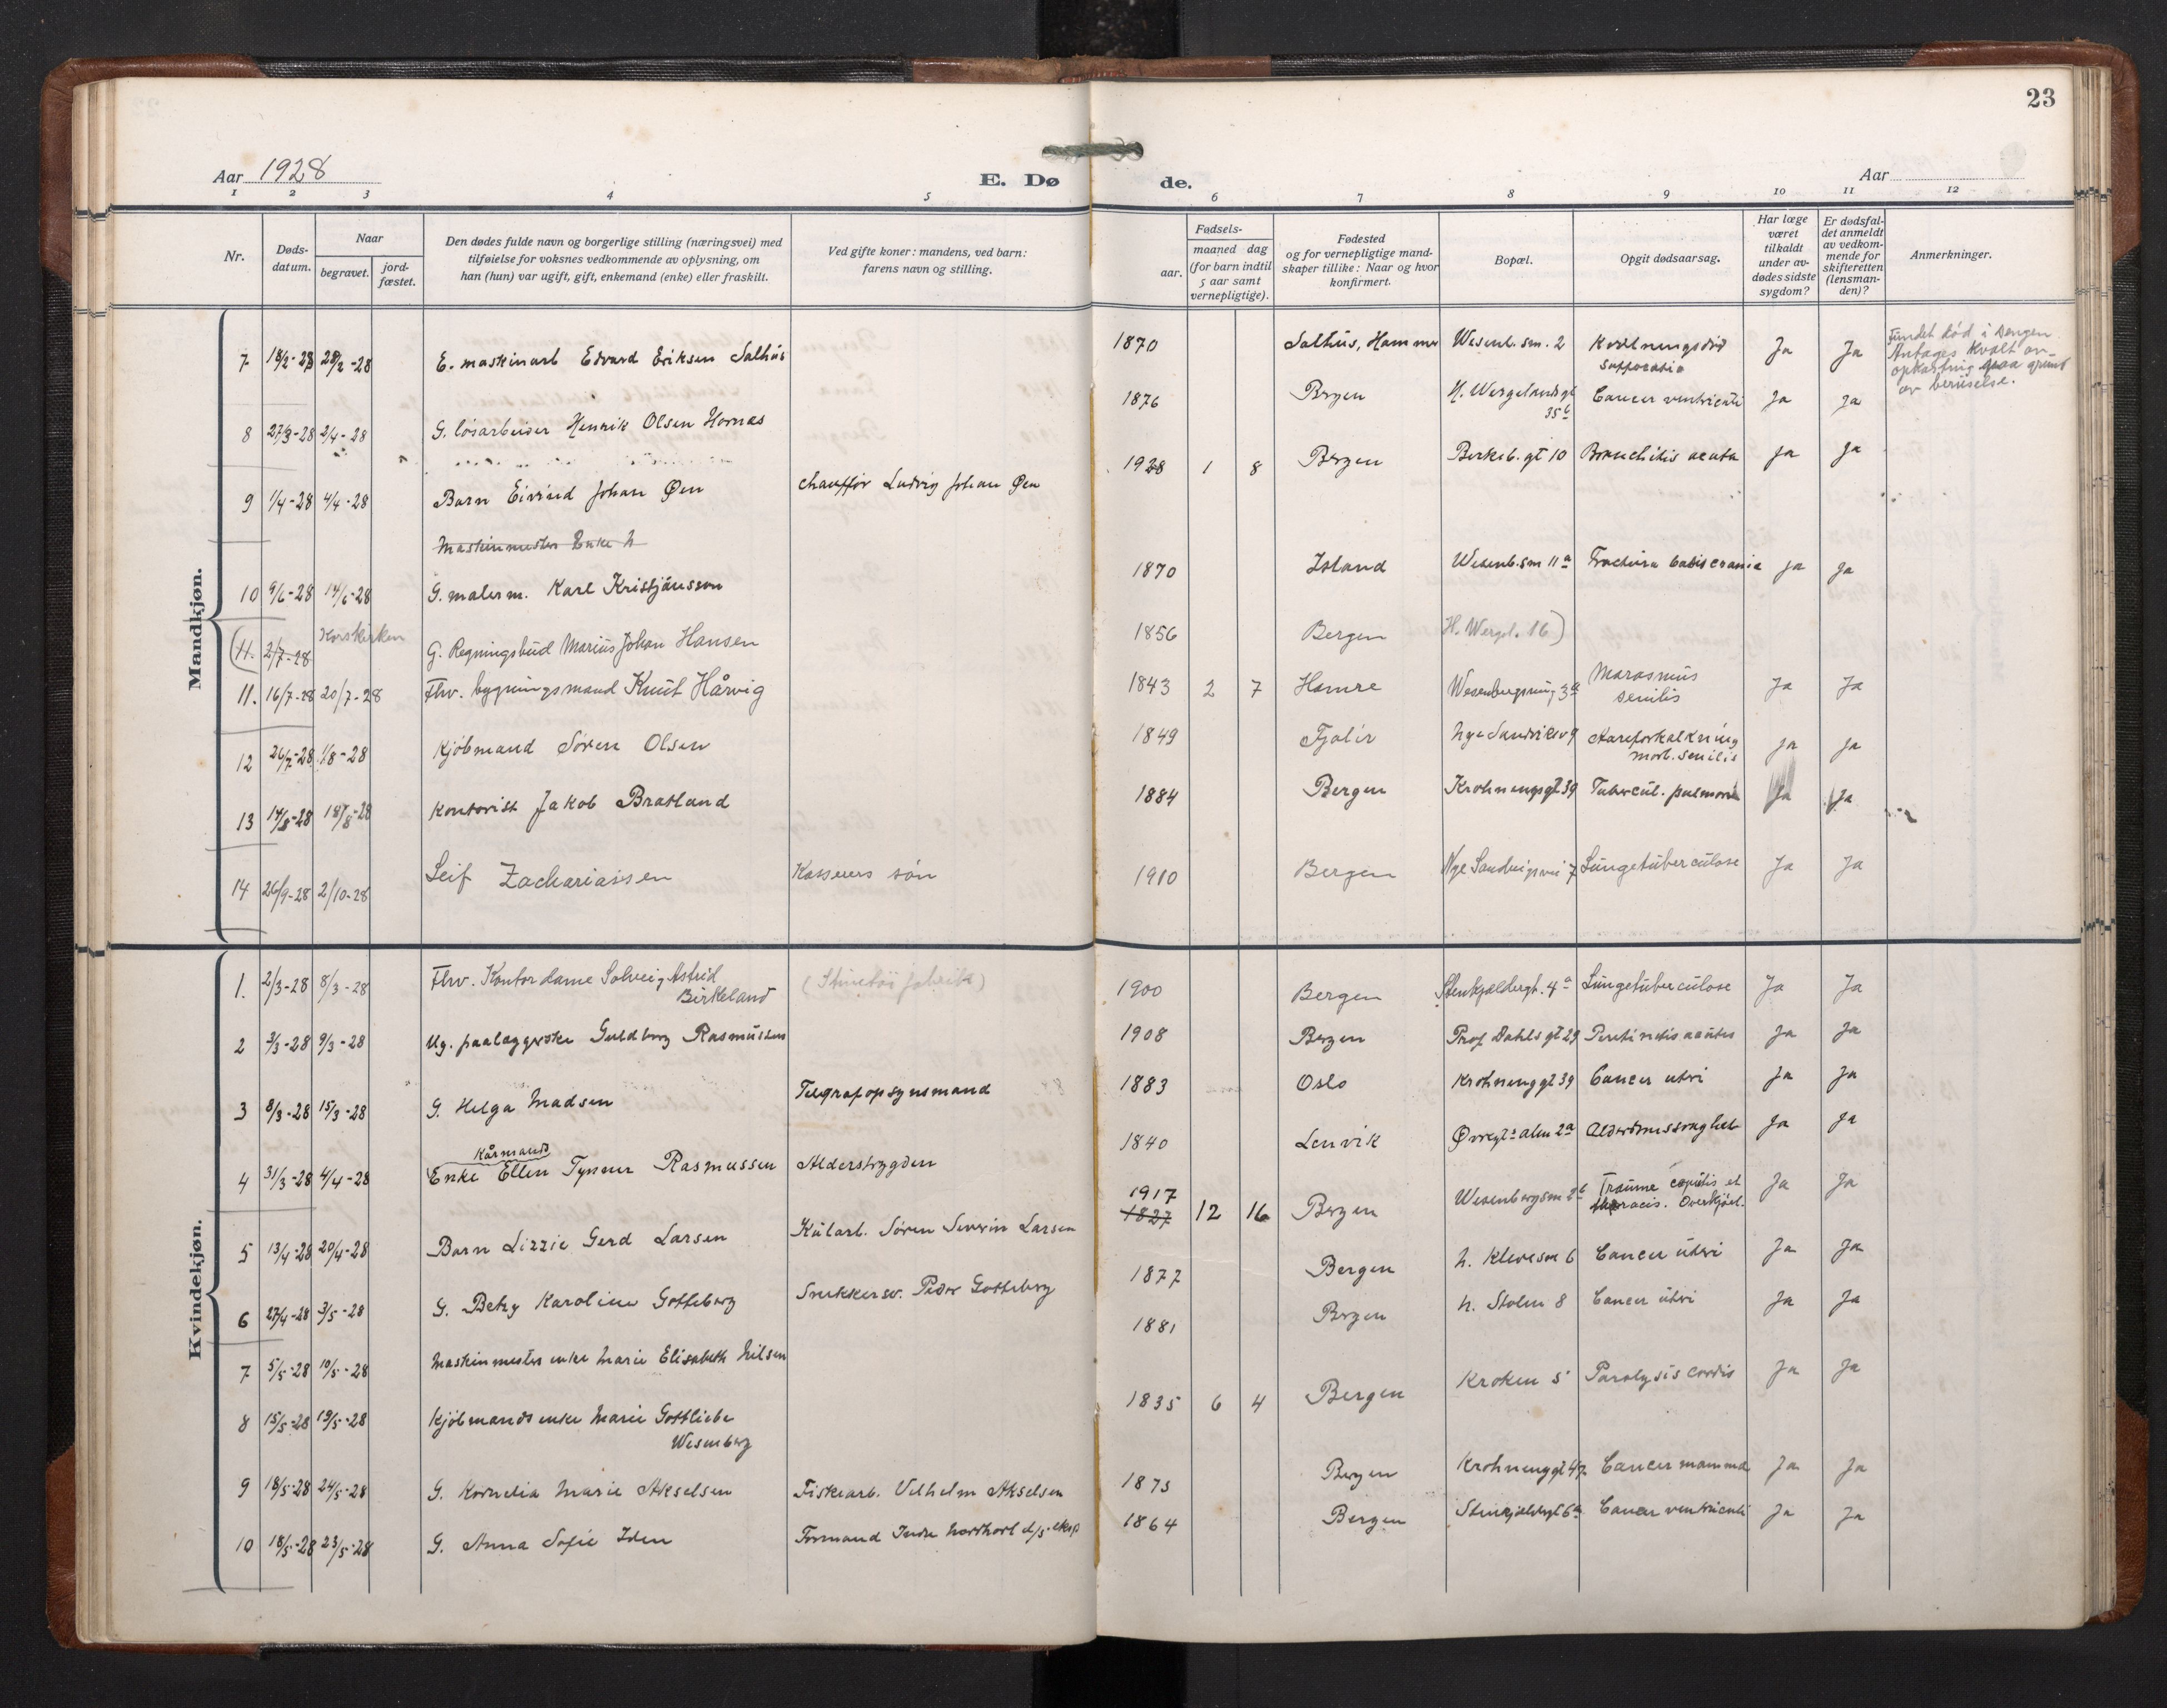 23
Aar 1928
E. Dø
de.
Aar
1 2 3 4 5 6 7 8 9 10 11 12
Nr.
Døds-
datum.
Naar
begravet.
jord-
fæstet.
Den dødes fulde navn og borgerlige stilling (næringsvei) med
tilføielse for voksnes vedkommende av oplysning, om
han (hun) var ugift, gift, enkemand (enke) eller fraskilt.
Ved gifte koner: mandens, ved barn:
farens navn og stilling.
Fødsels-
aar.
maaned dag
(for barn indtil
5 aar samt
vernepligtige).
Fødested
og for vernepligtige mand-
skaper tillike: Naar og hvor
konfirmert.
Bopæl.
Opgit dødsaarsag.
Har læge
været
tilkaldt
under av-
dødes sidste
sygdom?
Er dødsfal-
det anmeldt
av vedkom-
mende for
skifteretten
(lensman-
den)?
Anmerkninger.
Mandkjøn.
7 18/2-28 28/2-28 E. maskinarb Edvard Eriksen Salhus 1870 Salhus, Hammer Wesenb. sm. 2 Kvælningsdød Ja Ja
Suffocatio
Fundet død i sengen
Antages kvalt av
opkastning paa grund
av beruselse.
8 27/3-28 2/4-28 G. løsarbeider Henrik Olsen Hornes 1876 Bergen H. Wergelandsgt Cancer ventriculi Ja Ja
35b
9 1/4-28 4/4-28 Barn Eivind Johan Øen chauffør Ludvig Johan Øen 1928 1 8 Bergen Berkeb. gt 10 Bronchitis acuta Ja Ja
Maskinmester Enke N
10 9/6-28 14/6-28 G. malerm. Karl Kristjánsson 1870 Island Wesenb. sm 11a Fractura basis crania Ja Ja
(11. 2/7-28 Korskirken G. Regningsbud Marius Johan Hansen 1856 Bergen H. Wergel. 16)
11. 16/7-28 20/7-28 Fhv. bygningsmand Knut Hårvig 1843 2 7 Hamre Wesenbergsmug 3a Marasmus Ja Ja
senilis
12 26/7-28 1/8-28 Kjøbmand Søren Olsen 1849 Fjaler Nye Sandviksv 9 Aareforkalkning Ja Ja
morb. senilis
13 14/8-28 18/8-28 Kontorist Jakob Bratland 1884 Bergen Krohnengsgt 39 Tubercul. pulmon Ja Ja
14 26/9-28 2/10-28 Leif Zachariassen Kasserers søn 1910 Bergen Nye Sandvigsvei 7 Lungetuberculose Ja Ja
Kvindekjøn.
1. 2/3-28 8/3-28 Fhv. Kontordame Solveig Astrid 1900 Bergen Stenkjældergt. 4a Lungetuberculose Ja Ja
Birkeland
2 3/3-28 9/3-28 Ug. paalæggerske Guldborg Rasmussen 1908 Bergen Prof Dahls gt 29 Ja Ja
3 8/3-28 15/3-28 G. Helga Madsen Telegrafopsynsmand 1883 Oslo Krohnenggt 39 Cancer uteri Ja Ja
4 31/3-28 4/4-28 Kårmands
Enke Ellen Tynner Rasmussen Alderstrygden 1840 Lenvik Øvregts alm 2a Alderdomssvaghet Ja Ja
5 13/4-28 20/4-28 Barn Lizzie Gerd Larsen Kularb. Søren Severin Larsen 1917 1827 12 16 Bergen Wesenbergsm 2b Traume capitis et Ja Ja
thoracis. Overkjørt.
6 27/4-28 3/5-28 G. Betzy Karoline Gotteberg Snekkersv. Peder Gotteberg 1877 Bergen N. Kleve sm 6 Cancer uteri Ja Ja
7 5/5-28 10/5-28 Maskinmesters enke Marie Elisabeth Nilsen 1881 Bergen N. Stolen 8 Cancer uteri Ja Ja
8 15/5-28 19/5-28 Kjøbmands enke Marie Gottliebe 1835 6 4 Bergen Kroken 5 Paralysis cordis Ja Ja
Wesenberg
9 18/5-28 24/5-28 G. Kornelia Marie Akselsen Fiskearb. Vilhelm Akselsen 1875 Bergen Krohnenggt 47 Cancer mamma Ja Ja
10 18/5-28 23/5-28 G. Anna Sofie Iden Formand 1864 Bergen Stenkjeldergt 6a Cancer ventriculi Ja Ja